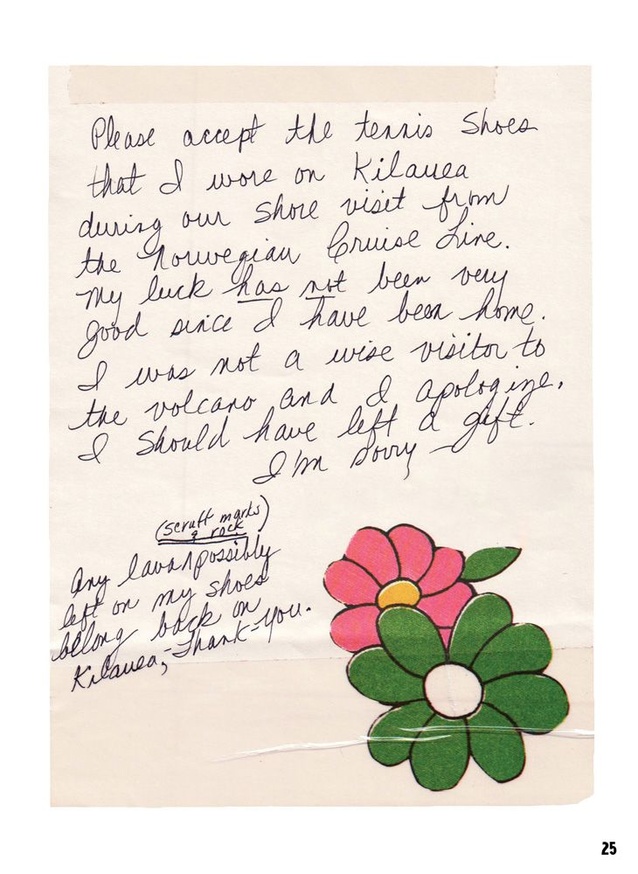 Please accept the tennis Shoes
that I wore on Kilauea
during our Shore visit from
the Norwegian Cruise Line.
My luck has not been very
good since I have been home.
I was not a wise visitor to
the volcano and I apologize.
I Should have left a gift.
I'm sorry –
(scruff marks
& rock)
Any lava possibly
left on my shoes
belong back on
Kilauea, – Thank-you.
25